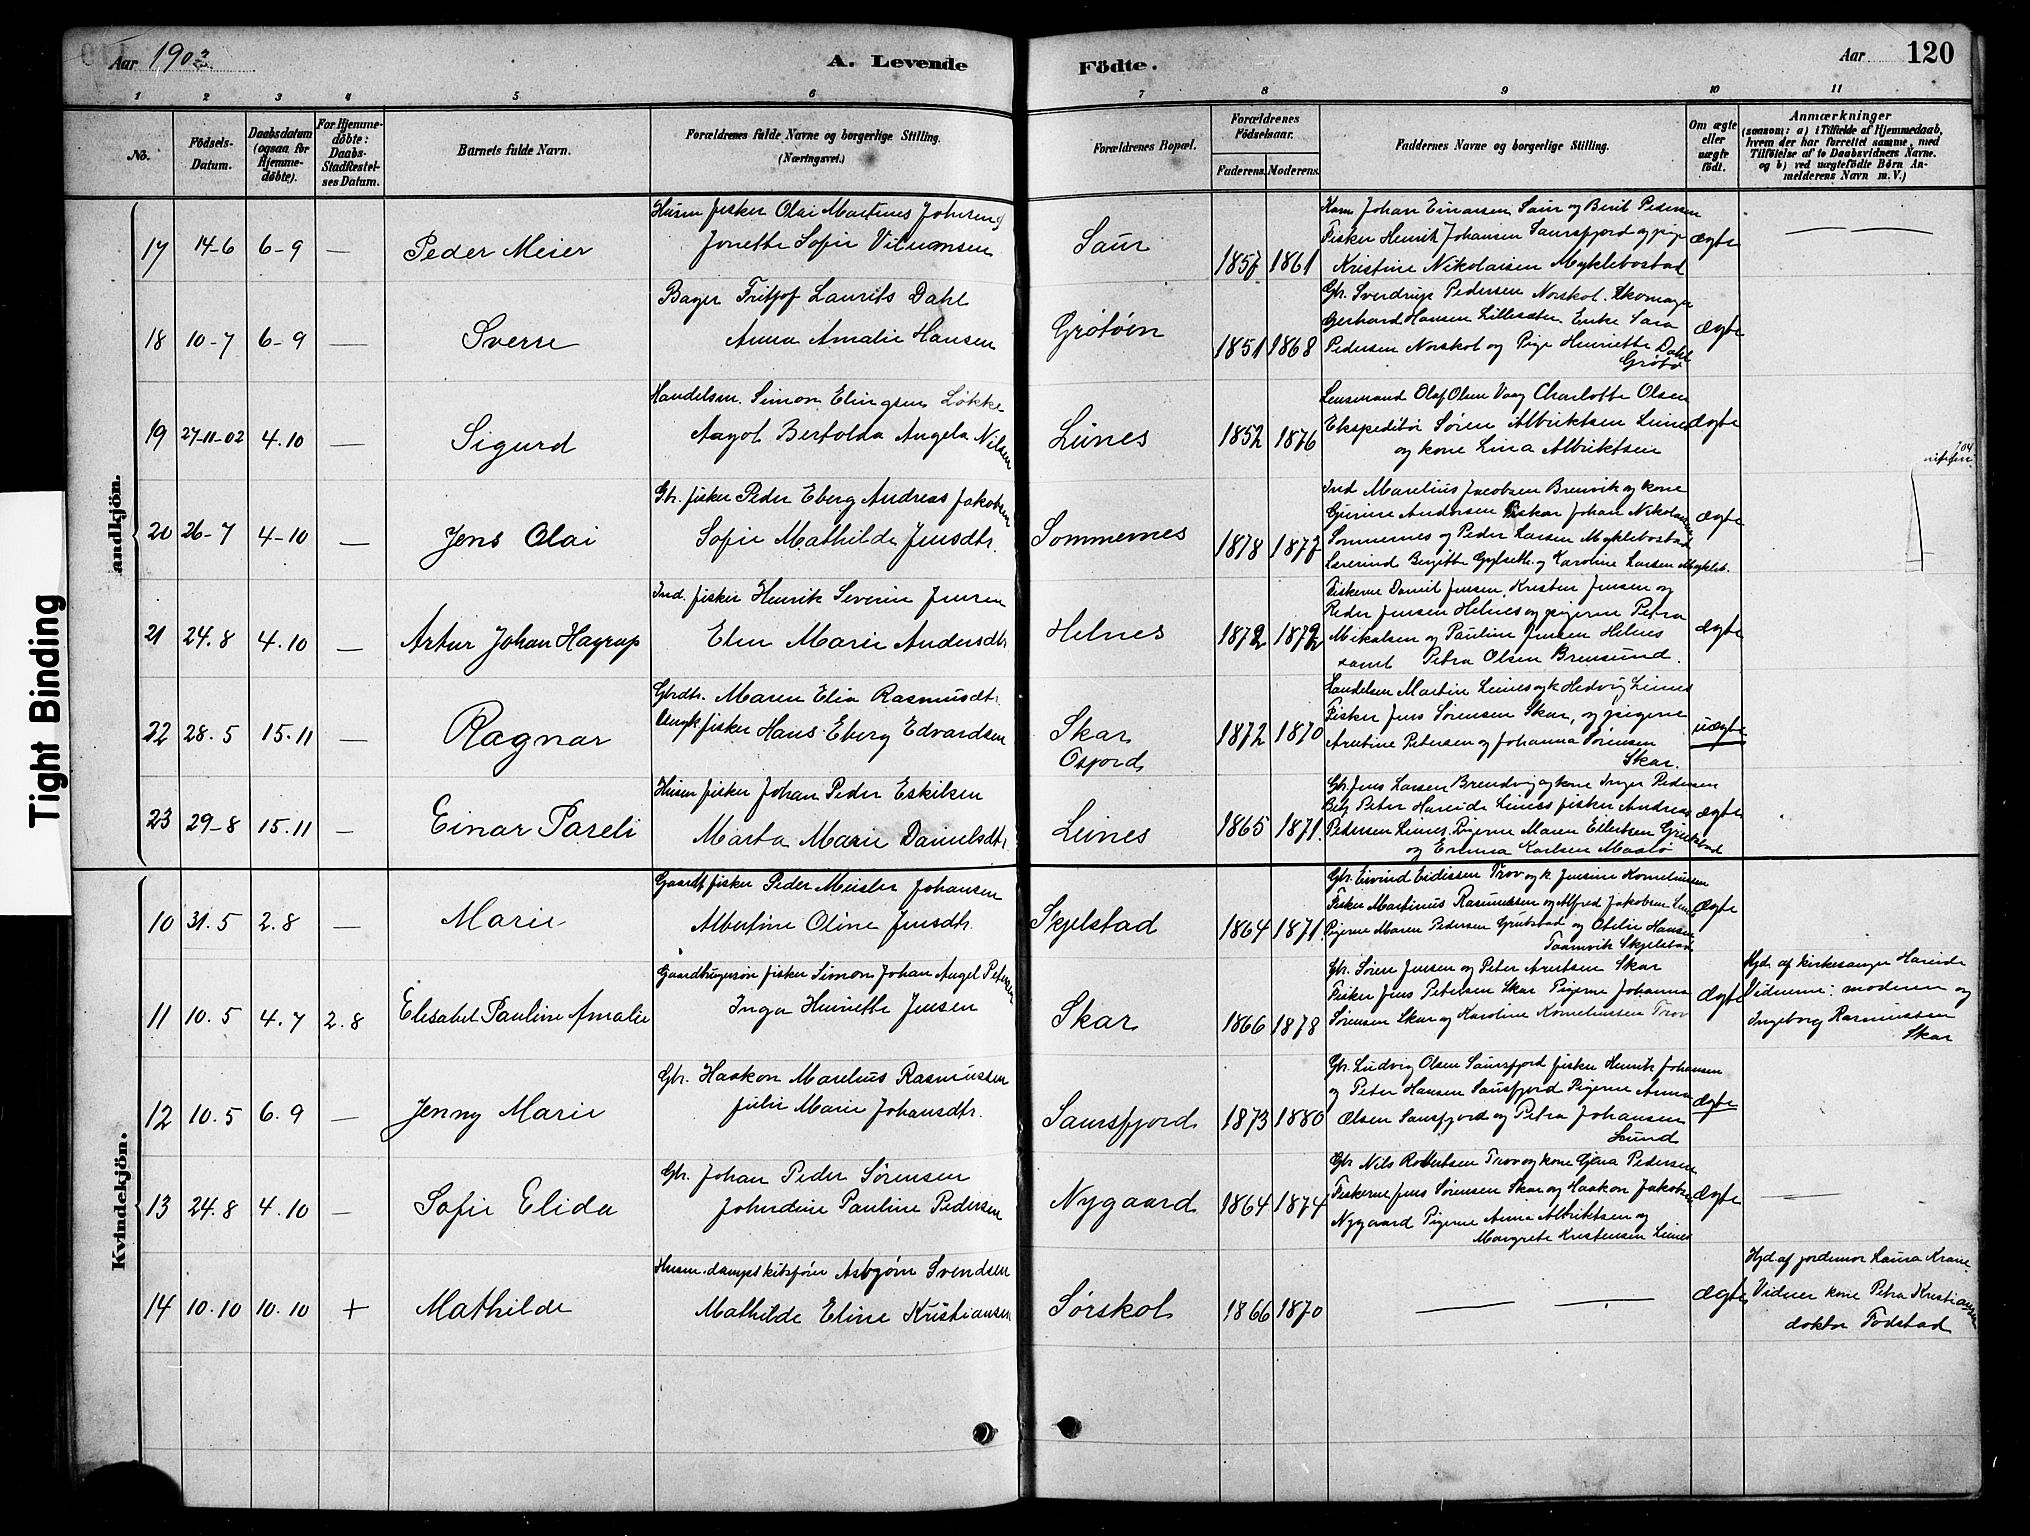 Aar 1903
A. Levende Födte.
Aar 120
1 2 3 4 5 6 7 8 9 10 11
No.
Födsels-Datum.
Daabsdatum (ogsaa for Hjemme-döbte).
For Hjemme-döbte: Daabs-Stadfæstel-ses Datum.
Barnets fulde Navn.
Forældrenes fulde Navne og borgerlige Stilling.
(Næringsvei.)
Forældrenes Bopæl.
Forældrenes Födselsaar.
Faderens. Moderens.
Faddernes Navne og borgerlige Stilling.
Om ægte eller uægte födt.
Anmærkninger
(saasom: a) i Tilfælde af Hjemmedaab,
hvem der har forrettet samme, med
Tilföielse af to Daabsvidners Navne.
og b) ved uægtefödte Börn An-
melderens Navn m. V.)
andkjön.
Tight Binding
17 14-6 6-9 — Peder Meier
Husm fisker Olai Martines Johnsen og
Jonette Sofie Vilumsen
Saur 1857 1861
Kaem Johan Einarsen Saur og Berit Pedersen
Fisker Henrik Johansen Saursfjord og pige
Kristine Nikolaisen Myklebostad
ægte — —
18 10-7 6-9 — Sverre
Bager Fritjof Laurits Dahl
Anna Amalie Hansen
Grötöen 1851 1868
Gbr. Sverdrup Pedersen Norskol. Skomager
Gerhard Hansen Lillesæter. Enke Sara
Pedersen Norskol og Pige Henriette Dahl
Grötö
ægte
19 27-11-02 4.10 — Sigurd
Handelsm. Simon Elingsen Løkke
Aagot Bertolda Angela Nilsen
Leines 1852 1876
Lensmand Olaf Olsen Vaag Charlotte Olsen
Ekspeditör Sören Albriktsen Leines
og kone Lina Albriktsen
ægte
20 26-7 4-10 — Jens Olai
Gbr. fisker Peder Eberg Andreas Jakobsen
Sofie Mathilde Jensdtr.
Sommernes 1878 1877
Ind Marelius Jacobsen Brenvik og kone
Gurine Andersen Fiskar Johan Nikolaisen
Sommernes og Peder Larsen Myklebostad
Lærerind Bergitte Gylseth. og Karoline Larsen Mykleb.
ægte
21 24.8 4.10 — Artur Johan Hagrup
Ind. fisker Henrik Severin Jensen
Elen Marie Andersdtr
Helnes 1872 1872
Fiskerne Daniel Jensen, Kristen Jensen og
Peder Jensen Helnes og pigerne Petra
Mikalsen og Pauline Jensen Helnes
samt Petra Olsen Brensund.
ægte
22 28.5 15.11 — Ragnar
Gbrdtr. Maren Elia Rasmusdtr
Ungk fisker Hans Eberg Edvardsen
Skar
Osfjord
1872 1870
Handelsm Martin Leines og k Hedvig Leines
Fisker Jens Sörensen Skar, og pigerne
Arntine Petersen og Johanna Sörensen
Skar.
uægte
23 29-8 15.11 — Einar Pareli
Husm fisker Johan Peder Eskilsen
Marta Marie Danielsdtr
Leines 1865 1871.
Gbr. Jens Larsen Brendvig og kone Inger Pedersen
Peter Hareide Leines fisker Andreas
Pedersen Leines. Pigerne Maren Eilertsen
og Emma Karlsen Maalö
ægte
Kvindekjön.
10 31.5 2.8 — Marie
Gaardb. fisker Peder Meisler Johansen
Albertine Oline Jensdtr.
Skjelstad 1864 1871.
Gbr. Eivind Eidissen Trov og k. Jensine Korneliussen
Fisker Martinus Rasmussen og Alfred Jakobsen Lund
Pigerne Maren Pedersen Grubstad og Otelie Hansen
Taamvik Skjelstad
ægte
11 10.5 4.7 2.8 Elisabet Pauline Amalie
Gaardbrugersøn fisker Simon Johan Angel Petersen
Inga Henriette Jensen
Skar 1866 1878
Gbr. Sören Jensen og Peter Arntsen Skar
Fisker Jens Petersen Skar Pigerne Johanna
Sörensen Skar og Karoline Korneliussen Trov
ægte
Hjd. af kirkesanger Hareide
Vidnerne: moderen og
Ingeborg Rasmussen
Skar
12 10.5 6.9 — Jenny Marie
Gbr. Haakon Marelius Rasmussen
Julie Marie Johansdtr.
Saursfjord 1873 1880
Gbr. Ludvig Olsen Saursfjord fisker Henrik Johansen
og Peter Hansen Saursfjord Pigerne Anna
Olsen Saursfjord og Petra Johansen
Lund
ægte
13 24.8 4.10 — Sofie Elida
Gbr. Johan Peder Sørensen
Johndine Pauline Pedersen
Nygaard 1864 1874
Gbr Nils Robertsen Trov og kone Gjera Pedersen
Fiskerne Jens Sörensen Skar og Haakon Jakobsen
Nygaard Pigerne Anna Albriktsen og
Margrete Kristensen Leines
ægte —
14 10.10 10.10 + Mathilde
Husm. dampskibsförer Asbjørn Svendsen
Mathilde Eline Kristiansen
Sørskol 1866 1870
— —
ægte
Hjd. af jordemor Laura Krane
Vidner kone Petra Kristiansen
doktor Todstad